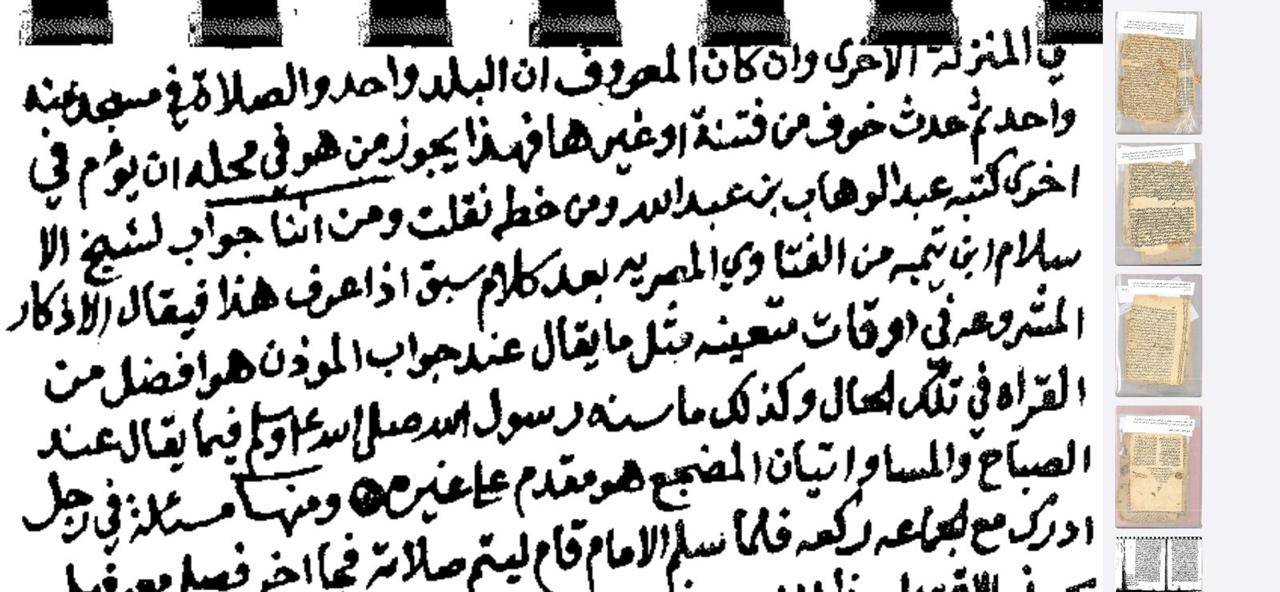 في المنزلة الاخرى وان كان المعروف ان البلد واحد والصلاة في مسجد عينه
واحد ثم حدث خوف من فتنة او غيرها فهذا يجوز من هو في محله ان يؤم في
اخرى كتبه عبد الوهاب بن عبد الله ومن خطه نقلت ومن اثنا جواب لشيخ الا
سلام ابن تيميه من الفتاوي المصريه بعد كلام سبق اذا عرف هذا فيقال الاذكار
المشروعه في اوقات متعينه مثل ما يقال عند جواب الموذن هو افضل من
القراه في تلك الحال وكذلك ما سنه رسول الله صلى الله عليه وسلم فيما يقال عند
الصباح والمسا واتيان المضجع هو مقدم على غيره ومنها مسئلة في رجل
ادرك مع الجماعه ركعه فلما سلم الامام قام ليتم صلاته فجا اخر فصلى معه